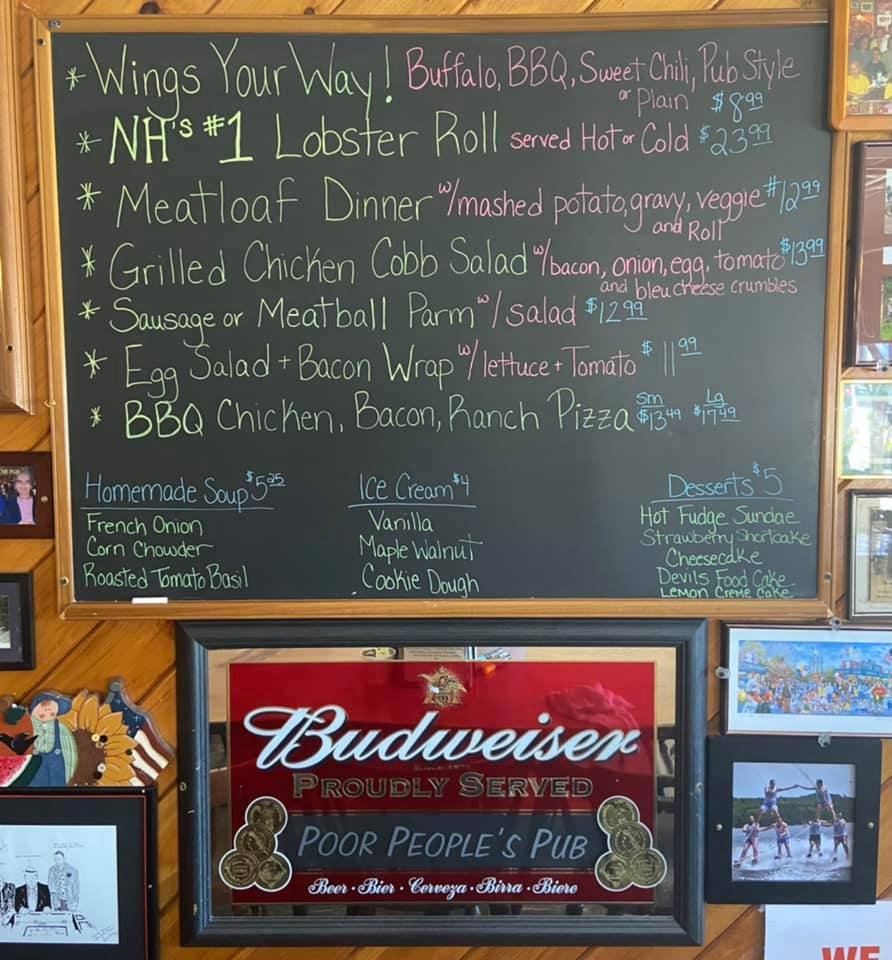 * Wings Your Way! Buffalo, BBQ, Sweet Chili, Pub Style
or Plain $8.99
* NH's #1 Lobster Roll served Hot or Cold $23.99
* Meatloaf Dinner w/mashed potato, gravy, veggie #12.99
and Roll
* Grilled Chicken Cobb Salad w/bacon, onion, egg, tomato $13.99
and bleu cheese crumbles
* Sausage or Meatball Parm w/salad $12.99
* Egg Salad + Bacon Wrap w/lettuce + Tomato $11.99
* BBQ Chicken, Bacon, Ranch Pizza Sm $13.49 Lg $17.49
Homemade Soup $5.25
French Onion
Corn Chowder
Roasted Tomato Basil
Ice Cream $4
Vanilla
Maple Walnut
Cookie Dough
Desserts $5
Hot Fudge Sundae
Strawberry Shortcake
Cheesecake
Devils Food Cake
Lemon Creme Cake
Budweiser
PROUDLY SERVED
POOR PEOPLE'S PUB
Beer • Bier • Cerveza • Birra • Biere
WE